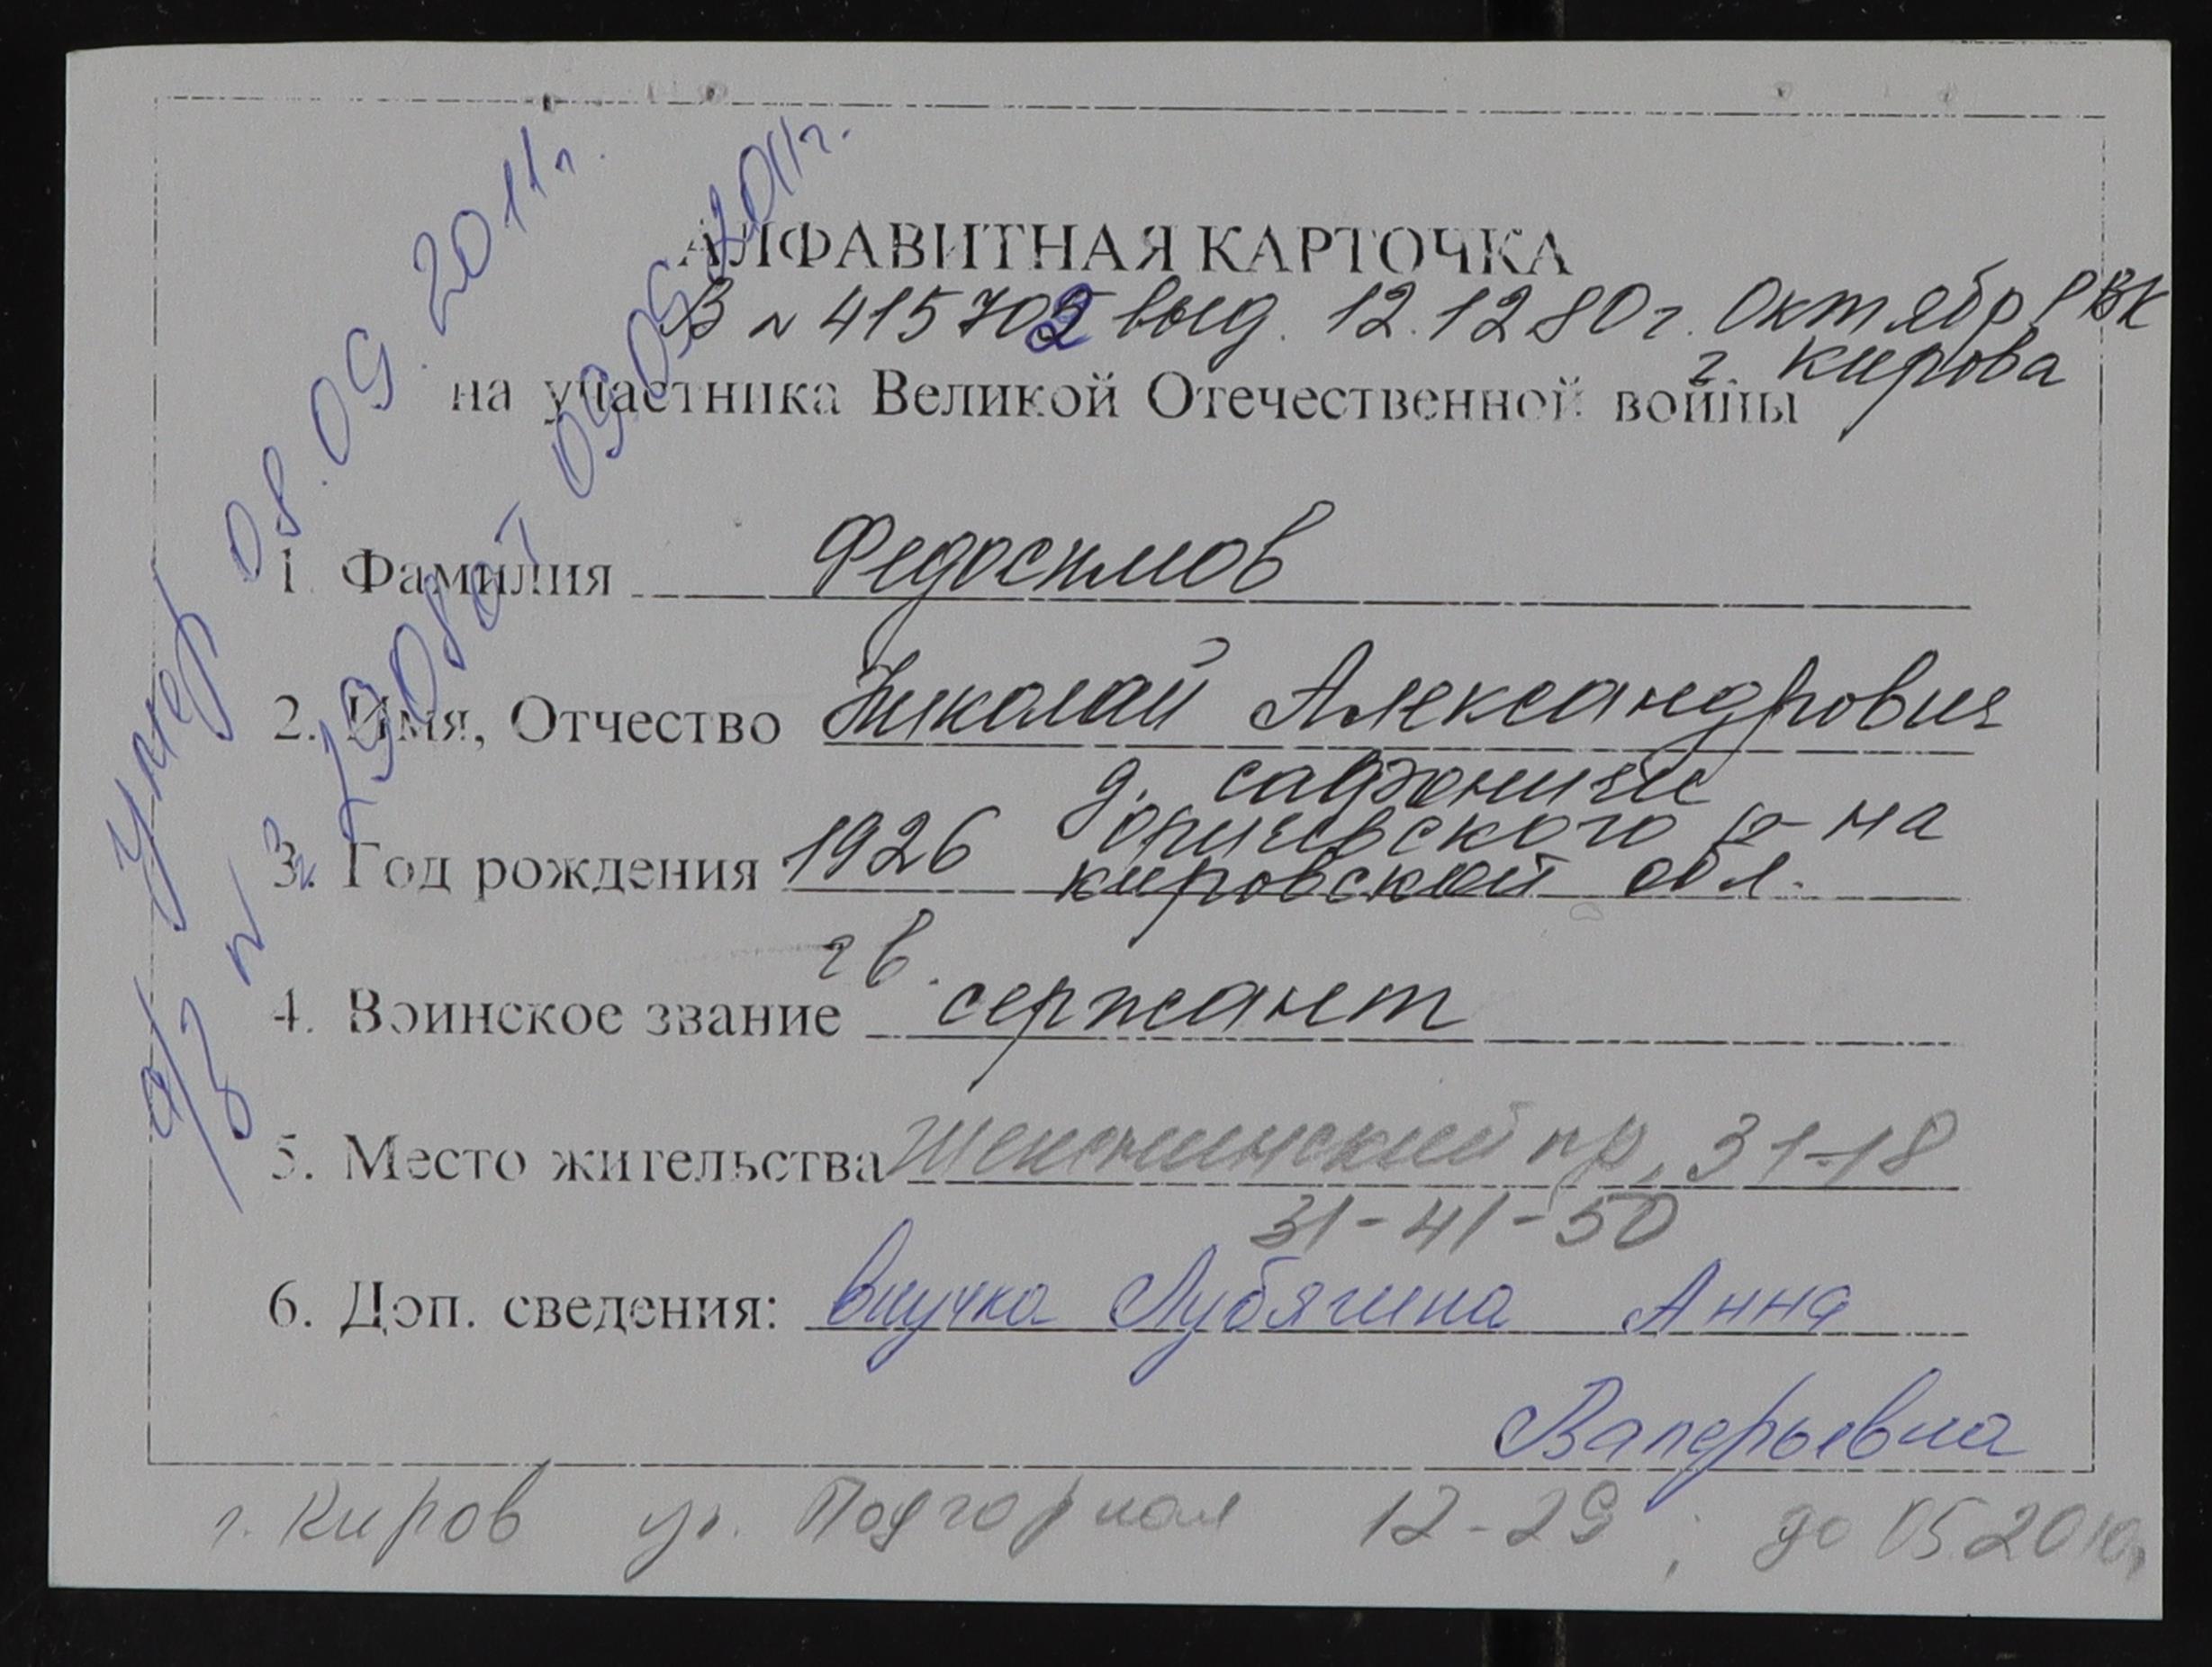 АЛФАВИТНАЯ КАРТОЧКА
В № 415702 выд. 12.12 80г. Октябр РВК
г. Кирова
на участника Великой Отечественной войны
1. Фамилия Федосимов
2. Имя, Отчество Николай Александрович
д. 
3. Год рождения 1926 Оричевского р-на
Кировской обл.
гв.
4. Воинское звание сержант
5. Место жительства пр, 31-18
31-41-50
6. Доп. сведения: внучка Лубягина Анна
Валерьевна
г. Киров ул. Подгорная 12-29; до 05.2010г
Умер 08.09.2011г.
а/з № от 09.09.2011г.